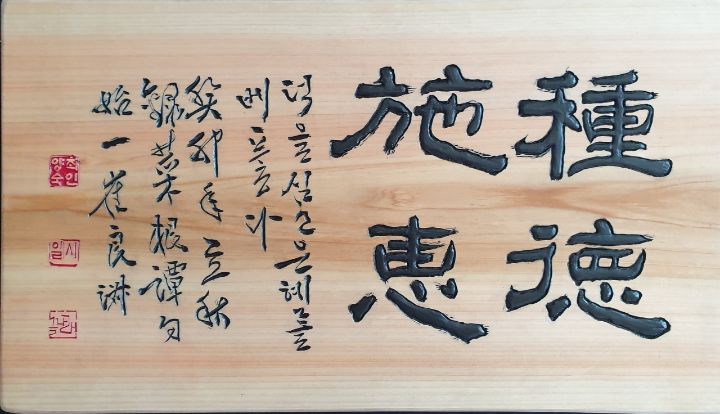 種德
施惠
덕을심고은혜를
癸卯年立秋
錄菜根譚句
始一崔良淑
최양숙인
시일